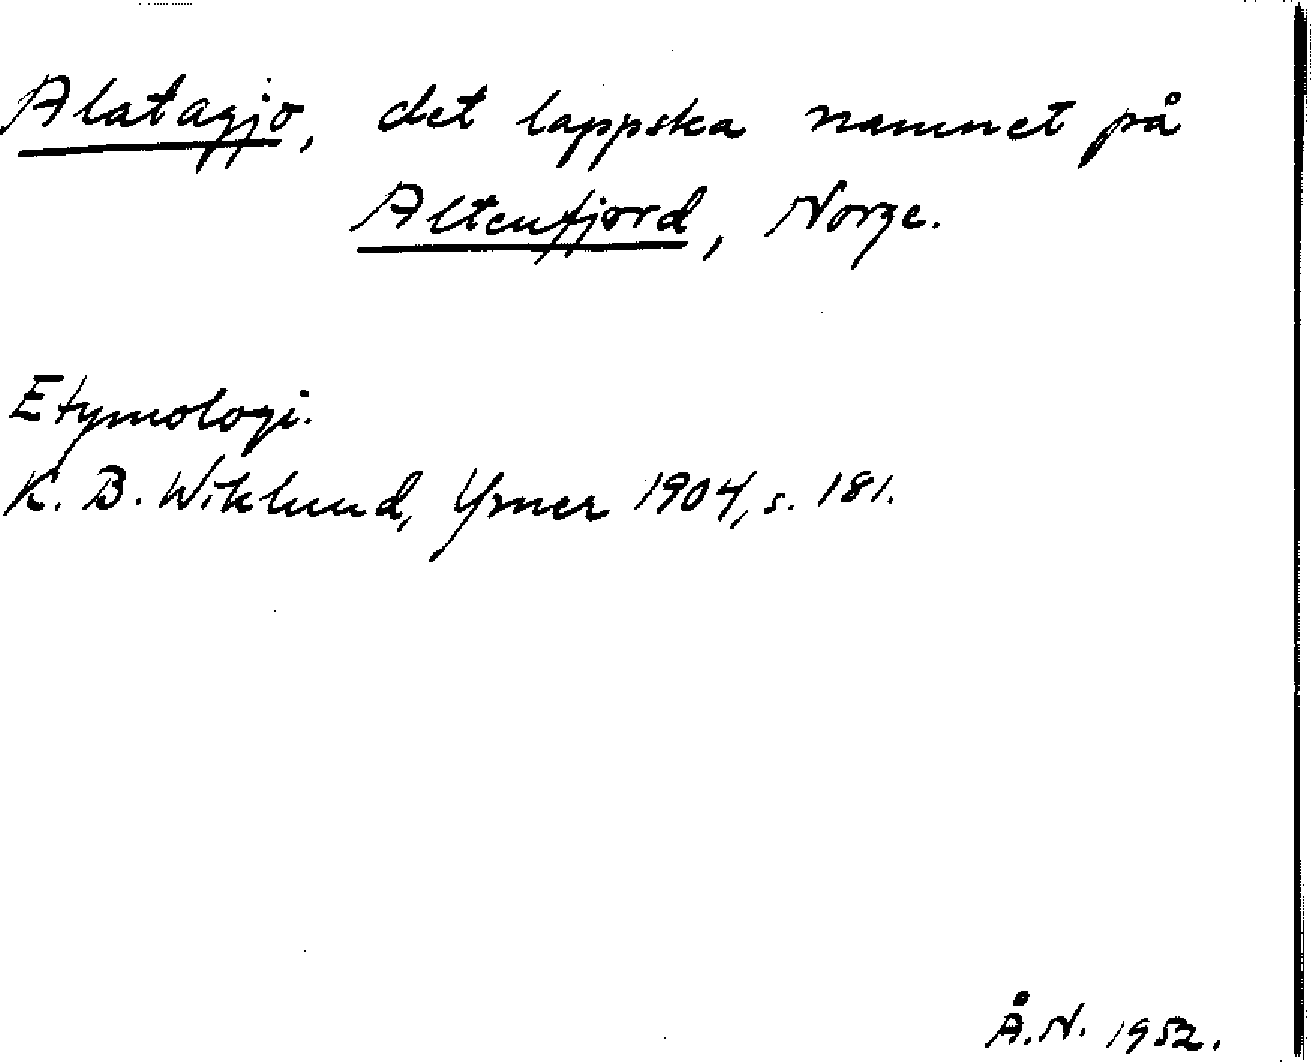 Alatagjo, det lappska namnet på
Altenfjord, Norge.
Etymologi.
K. B. Wiklund, Ymer 1904, s. 181.
Å.N. 1952.